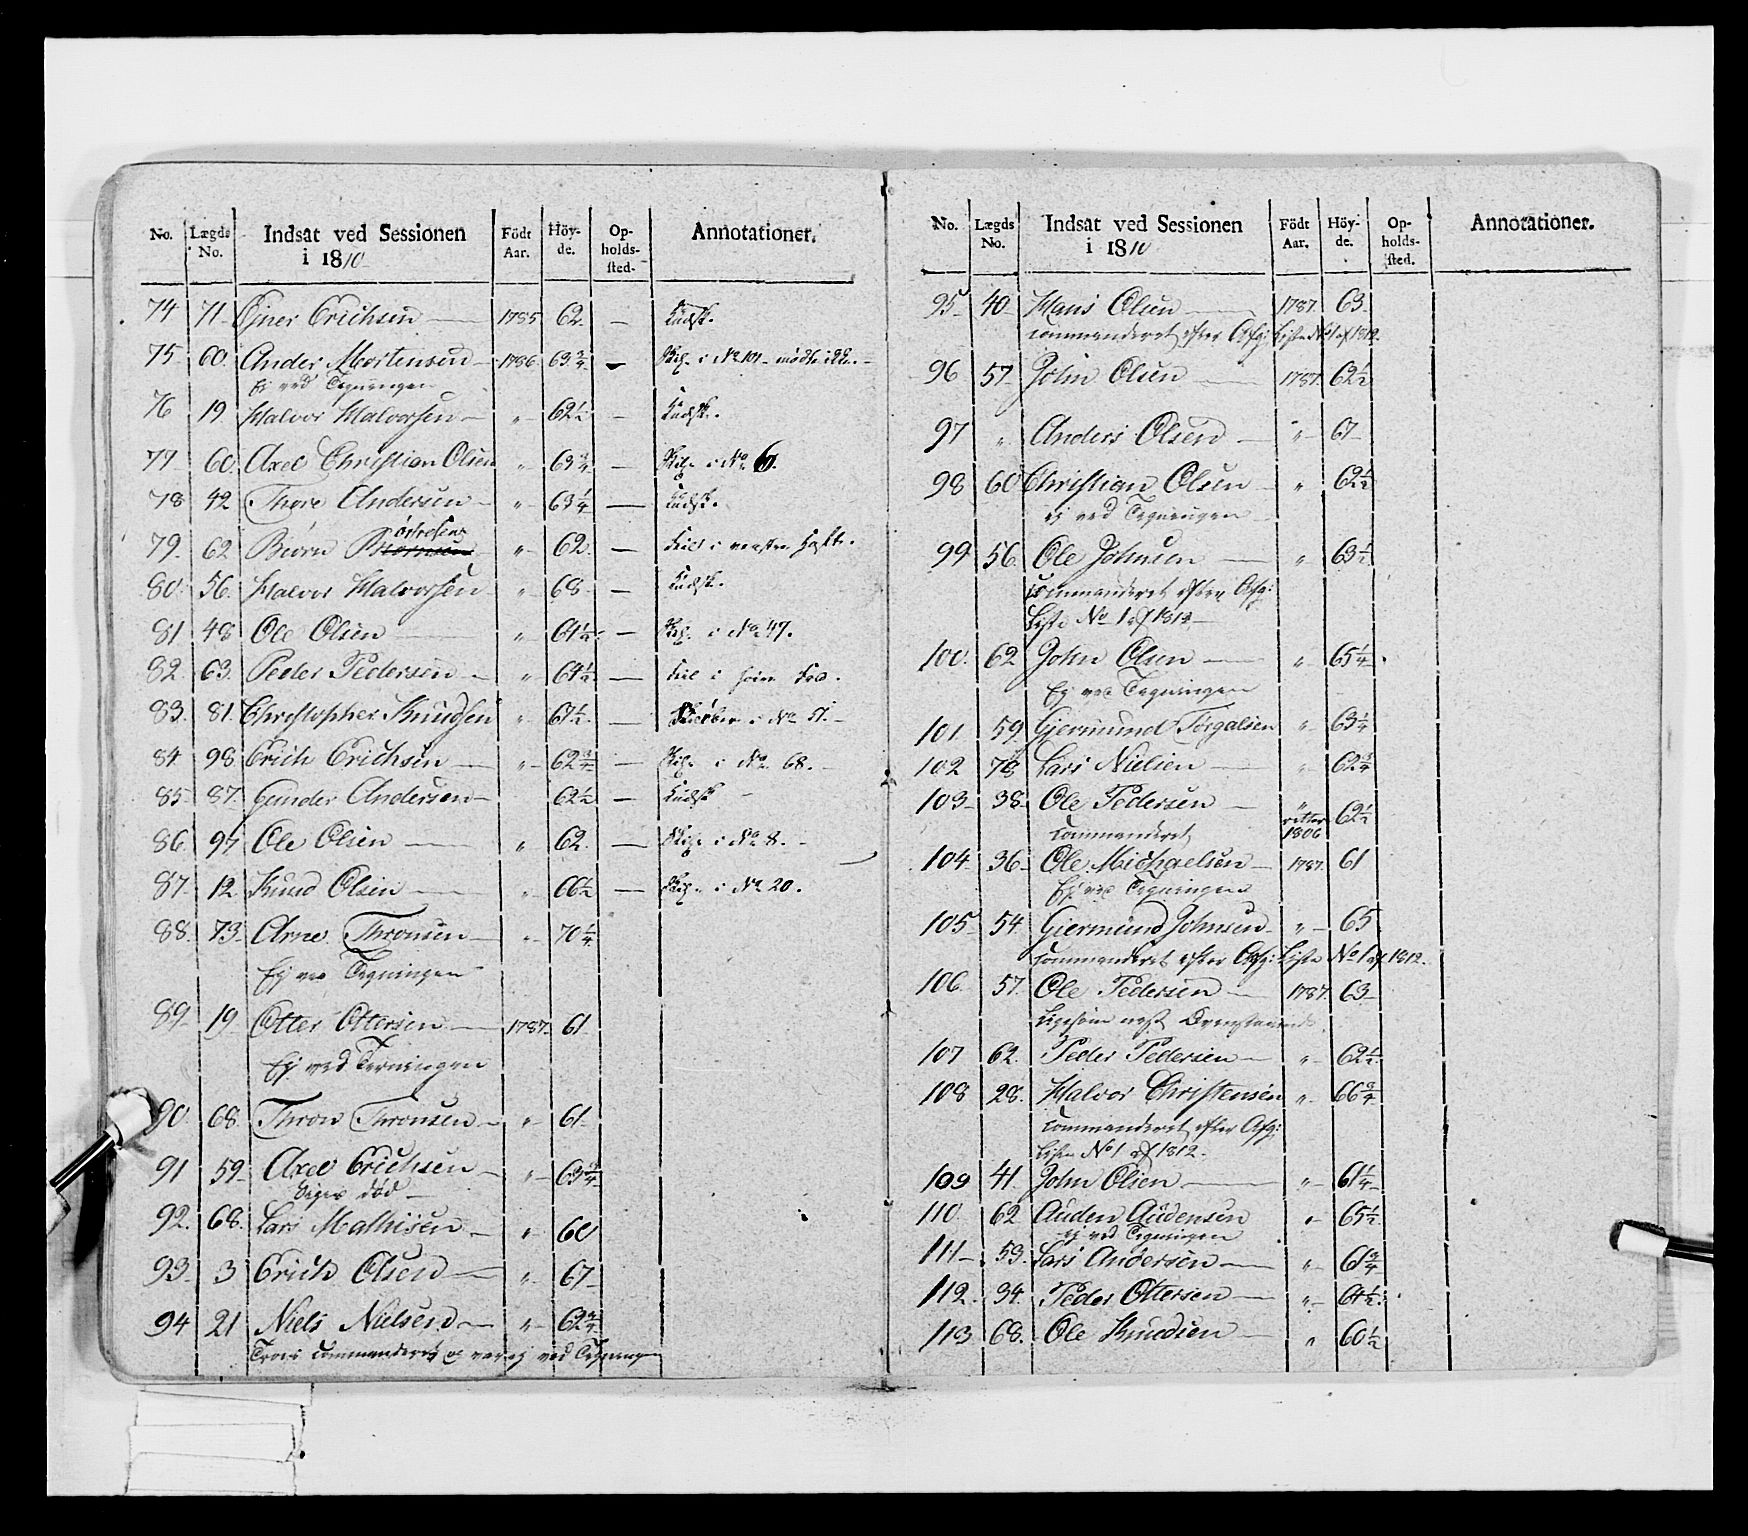 No. Lægds No. Indsat ved Sessionen i 1810 Födt Aar. Höy-de. Op-holds-sted. Annotationer.
74 71 Ejner Erichsen 1785 62 — Kudsk.
75 60 Ander Mortensen 1786 63 3/4 — i No 101 mødte ikke
Ej ved Tegningen
76 19 Halvor Halvorsen " 62 1/2 — Kudsk.
77 60 Axel Christian Olsen " 63 3/4 — i No 6.
78 42 Thore Andersen " 63 1/4 — Kudsk.
79. 62 Biørn Biørnsen " 62. — Feil i venstre
80. 56. Halvor Halvorsen " 68 — Kudsk.
81 48 Ole Olsen " 61 1/2 — i No 47.
82. 63. Peder Pedersen " 64 1/2 — Feil i
83. 81. Christopher Knudsen " 61 1/2 — i No 51.
84 98. Erich Erichsen " 62 3/4 — i No 68.
85 87. Gunder Andersen 62 1/2 — Kudsk
86. 97 Ole Olsen " 62. — i No 8.
87. 12 Knud Olsen " 66 1/2 — i No 20.
88. 73. Arne Thronsen " 70 1/4
Ej ved Tegningen
89 19 Otter Ottersen 1787. 61
Ej ved Tegningen
90. 68. Thron Thronsen " 61
91 59 Axel Erichsen " 63 3/4
Siges død
92. 68. Lars Mathisen " 60
93. 3 Erich Olsen " 67
94 21 Niels Nielsen " 62 3/4
commanderet og var ej ved Tegningen
No. Lægds No. Indsat ved Sessionen i 1810 Födt Aar. Höy-de. Op-holds-sted. Annotationer.
95 40 Hans Olsen 1787. 63
commanderet efter Afg: Liste No 1 af 1812.
96 57 John Olsen 1787. 62 1/2
97 " Anders Olsen " 67
98 60 Christian Olsen " 62 1/2
ej ved Tegningen
99 56. Ole Johnsen " 63 1/2
commanderet efter Afg:
Liste No 1 af 1812
100. 62 John Olsen " 65 1/4
Ej ved Tegningen
101 59 Gjermund Torgalsen " 63 1/4
102 78 Lars Nielsen " 62 3/4
103 38 Ole Pedersen " 62 1/2
commanderet 1806
104 36 Ole Michaelsen 1787. 61
Ej ved Tegningen
105 54 Giermund Johnsen " 65
commanderet efter Afg: Liste No 1 af 1812.
106 57. Ole Pedersen 1787. 63
Ligesom næst Ovenstaaende.
107 62. Peder Pedersen " 62 1/2
108 28. Halvor Christensen " 66 3/4
commanderet efter Afg:
Liste No 1 af 1812.
109 41. John Olsen " 61 1/4
110. 62 Auden Audensen " 65 1/2
ej ved Tegningen
111 53. Lars Andersen " 61 3/4
112. 34. Peder Ottersen " 64 1/2
113 68. Ole Knudsen " 60 1/2